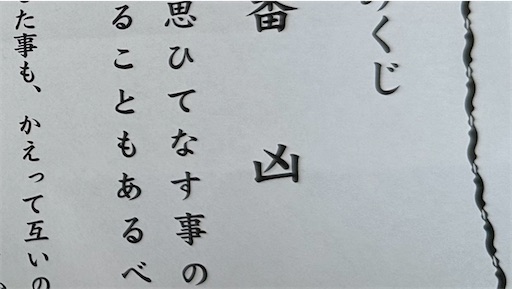 みくじ
番 凶
思ひてなす事の
ることもあるべ
た事も、かえって互いの